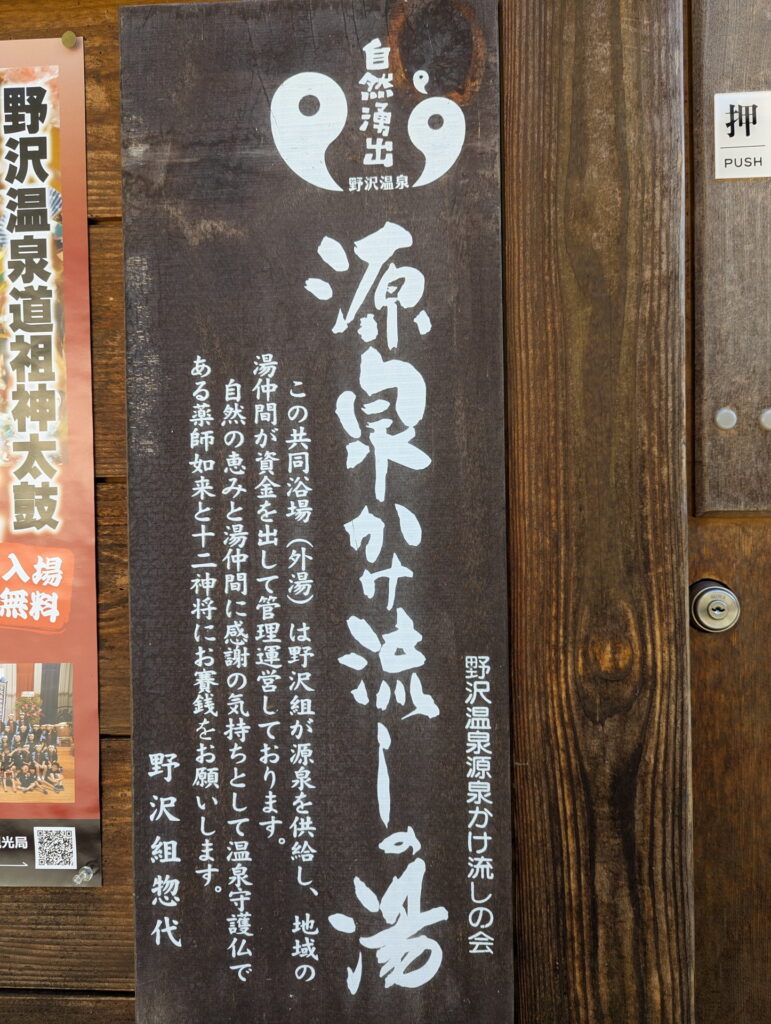 自然湧出
野沢温泉
源泉かけ流しの湯
野沢温泉源泉かけ流しの会
この共同浴場（外湯）は野沢組が源泉を供給し、地域の
湯仲間が資金を出して管理運営しております。
自然の恵みと湯仲間に感謝の気持ちとして温泉守護仏で
ある薬師如来と十二神将にお賽銭をお願いします。
野沢組惣代
押
PUSH
野沢温泉道祖神太鼓
入場
無料
光局